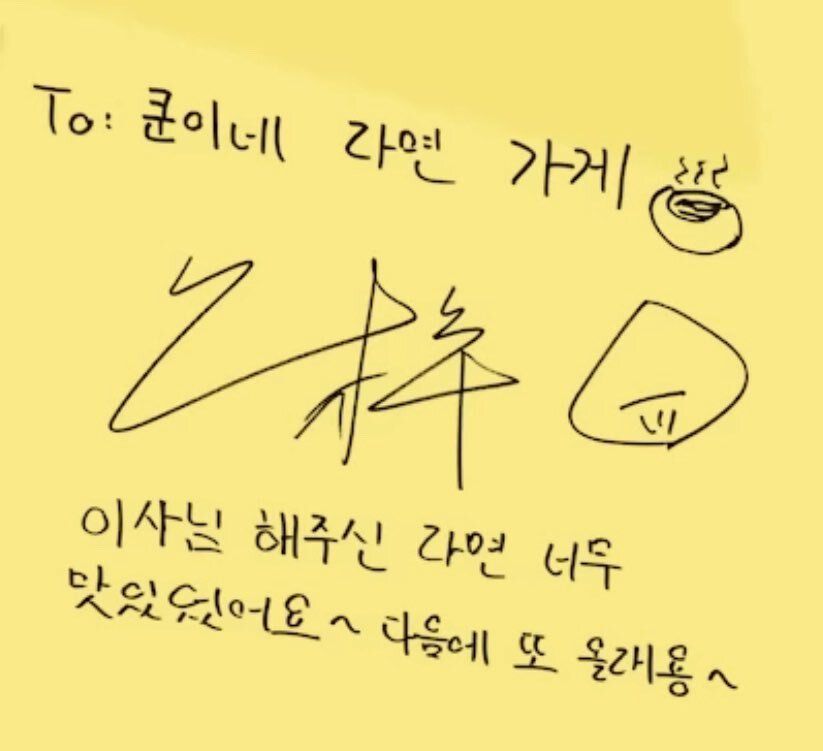 To: 쿤이네 라면 가게
이사님 해주신 라면 너무
맛있었어요~ 다음에 또 올래용~